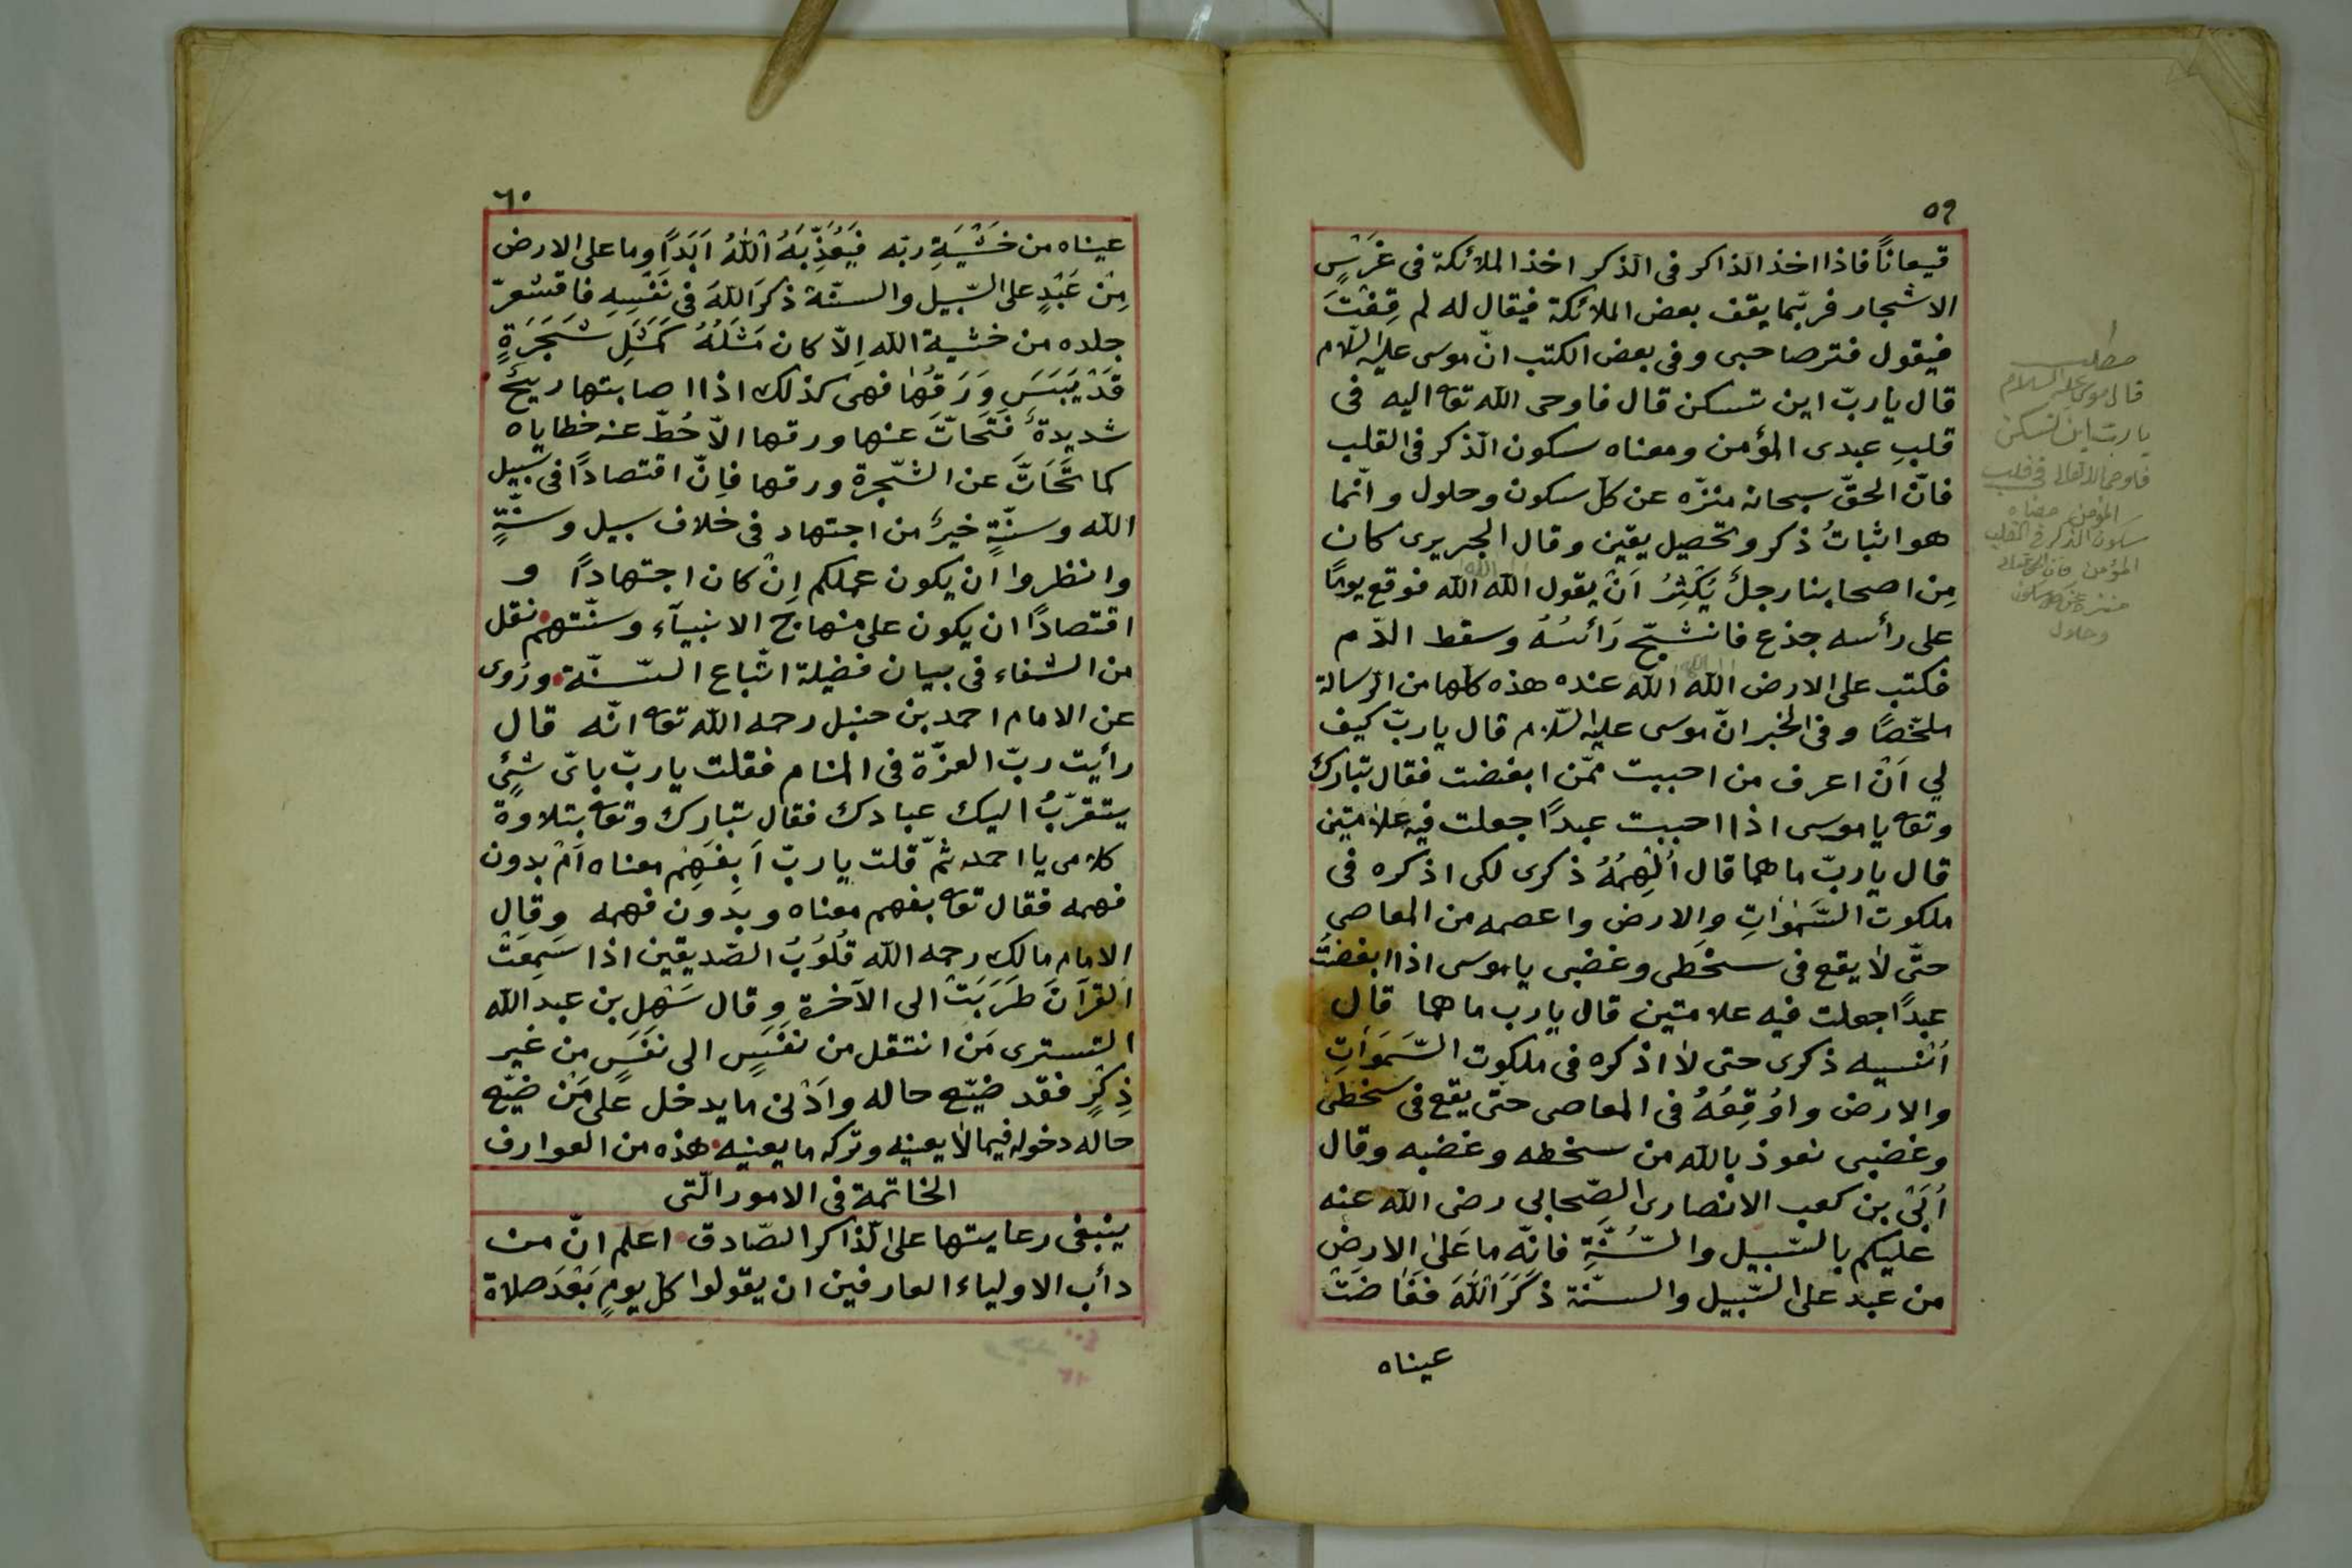 ٥٩
قيعاناً فاذا اخذ الذاكر فى الذكر اخذ الملائكة فى غَرْسِ
الاشجار فربّما يقف بعض الملائكة فيقال له لم قِفْتَ
فيقول فتر صاحبى وفى بعض الكتب انّ موسى عليه السّلام
قال يا ربّ اين تسكن قال فاوحى الله تعه اليه فى
قلبِ عبدى المؤمن ومعناه سكون الذّكر فى القلب
فانّ الحقّ سبحانه منزّه عن كلّ سكون وحلول وانّما
هو اثباتُ ذكر وتحصيل يقين وقال الجريرى كان
مِن اصحابنا رجلٌ يُكْثِرُ اَنْ يقول الله الله فوقع يومًا
على رأسه جذع فانشجّ رَأسُهُ وسقط الدّم
فكتب على الارض الله الله عنده هذه كلّها من الرّسالة
ملخّصًا وفى الخبر انّ موسى عليه السّلام قال يا ربّ كيف
لي اَنْ اعرف من احببت ممّن ابغضت فقال تبارك
وتعه يا موسى اذا احببت عبداً جعلت فيه علامتين
قال يا ربّ ما هما قال اُلْهِمُهُ ذكرى لكى اذكره فى
ملكوت السَّمٰوَاتِ والارض واعصمه من المعاصى
حتّى لا يقع فى سخطى وغضبى يا موسى اذا ابغضتُ
عبدًا جعلت فيه علامتين قال يا رب ما هما قال
اُنْسيه ذكرى حتى لا اذكره فى ملكوت السَّمَوَاتِ
والارض واوُقِعُهُ فى المعاصى حتّى يقع فى سخطى
وغضبى نعوذ بالله من سخطه وغضبه وقال
اُبَىّ بن كعب الانصارى الصّحابى رضى الله عنه
عليكم بالسّبيل والسُّنَّةِ فانّه ما عَلىٰ الارضِ
من عبد على السّبيل والسنّة ذَكَرَ اللّٰهَ ففَاضَتْ
عيناه
مطلب
قال موسى عليه السلام
يا رب اين تسكن
فاوحى الله تعالى فى قلب
المؤمن معناه
سكون الذكر فى القلب
المؤمن
وحلول
٦٠
عيناه من خَشْيَةِ ربّه فيَعُذِّبَهُ اللّٰهُ اَبَدًا وما على الارض
مِنْ عَبْدٍ على السّبيل والسنّة ذكرَ اللّٰهَ فى نَفْسِهِ فاقشعرّ
جلده من خشية الله اِلاّ كان مَثَلُهُ كَمَثَلِ شَجَرَةٍ
قَدْ يَبَسَ وَرَقُهَا فهى كذلك اذا اصابتها ريحٌ
شديدةٌ فَتَحَاتَّ عنها ورقها الاّ حُطّ عنه خطاياه
كما تَحَاتَّ عن الشّجرة ورقها فاِنّ اقتصادًا فى سبيل
الله وسنّةٍ خيرٌ من اجتهاد فى خلاف سبيل وسنّةٍ
وانظروا ان يكون عملكم اِنْ كان اجتهادًا و
اقتصادًا ان يكون على منهاج الانبيآء وسنّتهم نقل
من الشفاء فى بيان فضيلة اتّباع السّنّة ورُوى
عن الامام احمد بن حنبل رحمه الله تعه انّه قال
رأيت ربّ العزّة فى المنام فقلت يا ربّ باىّ شئٍ
يتقرّبُ اليك عبادك فقال تبارك وتعه بتلاوة
كلامى يا احمد ثمّ قلت يا ربّ اَبِفَهْمِ معناه اَمْ بدون
فهمه فقال تعه بفهم معناه وبدون فهمه وقال
الامام مالك رحمه الله قُلُوبُ الصّديقين اذا سَمِعَتْ
القرآنَ طَرَبَتْ الى الآخرة وقال سَهْل بن عبد الله
التسترى مَن انتقل من نَفَسٍ الى نَفَسٍ من غير
ذِكْرٍ فقد ضيّع حاله واَدْنى ما يدخل على مَنْ ضيّع
حاله دخوله فيما لا يعنيه وتركه ما يعنيه هذه من العوارف
الخاتمة فى الامور الّتى
ينبغى رعايتها على الذّاكر الصّادق اعلم انّ من
دأب الاولياء العارفين ان يقولوا كلّ يومٍ بَعْدَ صلاة